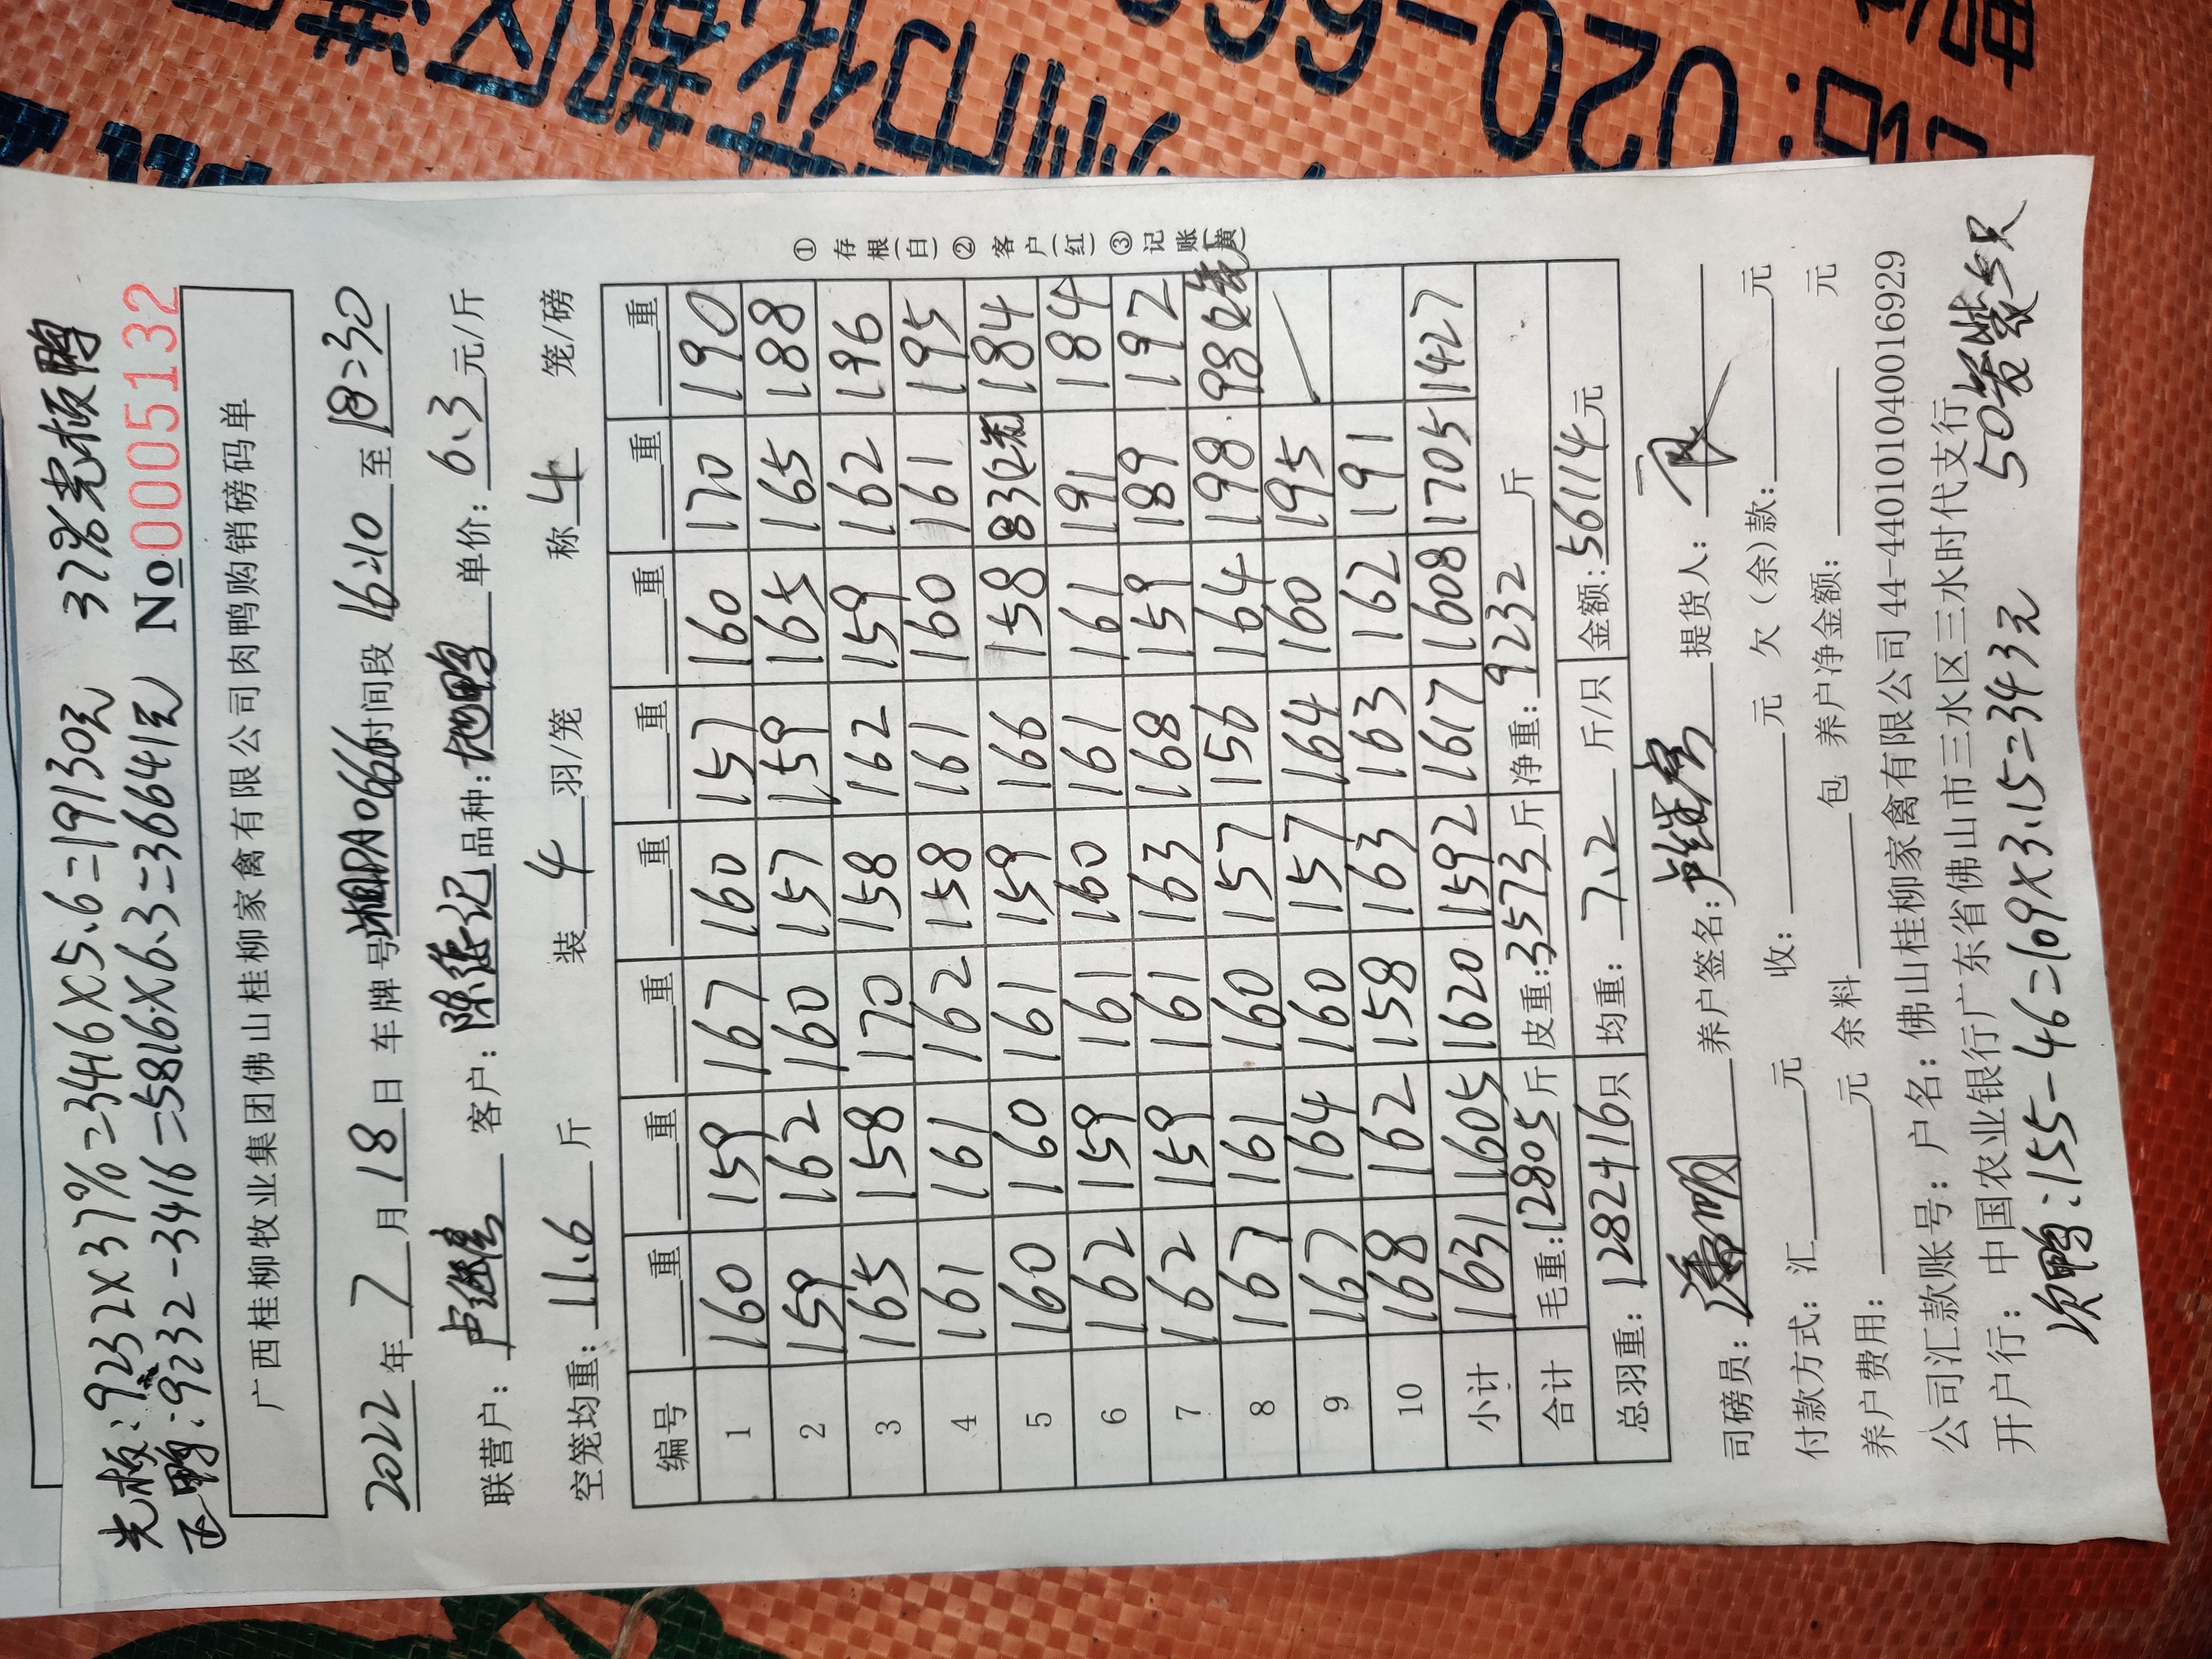 光板:9232×37%=3416×5.6=19130元 37%光板鸭
正鸭:9232-3416=5816×6.3=36641元 No0005132
广西桂柳牧业集团佛山桂柳家禽有限公司肉鸭购销磅码单
2022年7月18日 车牌号湘DA0666时间段16:10至18:30
联营户: 客户:陈强记 品种:地鸭 单价:6.3元/斤
空笼均重:11.6斤 装4羽/笼 称4笼/磅
编号 重 重 重 重 重 重 重 重
1 160 159 167 160 157 160 170 190
2 159 162 160 157 159 165 165 188
3 165 158 170 158 162 159 162 196
4 161 161 162 158 161 160 161 195
5 160 160 161 159 166 158 83 184
6 162 159 161 160 161 161 191 184
7 162 159 161 163 168 159 189 192
8 167 161 160 157 156 164 198 98
9 167 164 160 157 164 160 195
10 168 162 158 163 163 162 191
小计 1631 1605 1620 1592 1617 1608 1705 1427
合计 毛重:12805斤 皮重:3573斤 净重:9232斤
总羽重:1282+16只 均重:7.2斤/只 金额:56114元
①存根(白)②客户(红)③记账(黄)
司磅员: 养户签名: 提货人:
付款方式:汇 元 收: 元 欠(余)款: 元
养户费用: 元 余料 包 养户净金额: 元
公司汇款账号:户名:佛山桂柳家禽有限公司44-440101040016929
开户行:中国农业银行广东省佛山市三水区三水时代支行
次鸭:155-46=109×3.15=343元 50
020-66